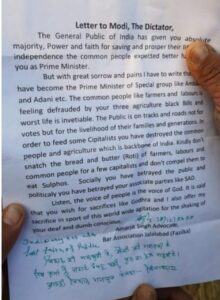 Letter to Modi, The Dictator,
The General Public of India has given you absolute
majority, Power and faith for saving and prosper their
independence the common people expected better
you as Prime Minister.
But with great sorrow and pains I have to write that
have become the Prime Minister of Special group like Amb
and Adani etc. The common people like farmers and labours is
feeling defrauded by your three agriculture black Bills and
worst life is invetiable. The Public is on tracks and roads not for
votes but for the livelihood of their families and generations. In
order to feed some Cpitalists you have destroyed the common
people and agriculture which is backbone of India. Kindly don't
snatch the bread and butter (Roti) of farmers, labours and
common people for a few capitalists and don't compel them to
eat Sulphos. Socially you have betrayed the public and
politicaly you have betrayed your associate parties like SAD.
Listen, the voice of people is the voice of God. It is said
that you wish for sacrifices like Godhra and I also offer my
sacrifice in sport of this world wide agitation for the shaking of
your deaf and dumb conscious.
Amarjit Singh Advocate,
Bar Association Jalalabad (Fazilka)